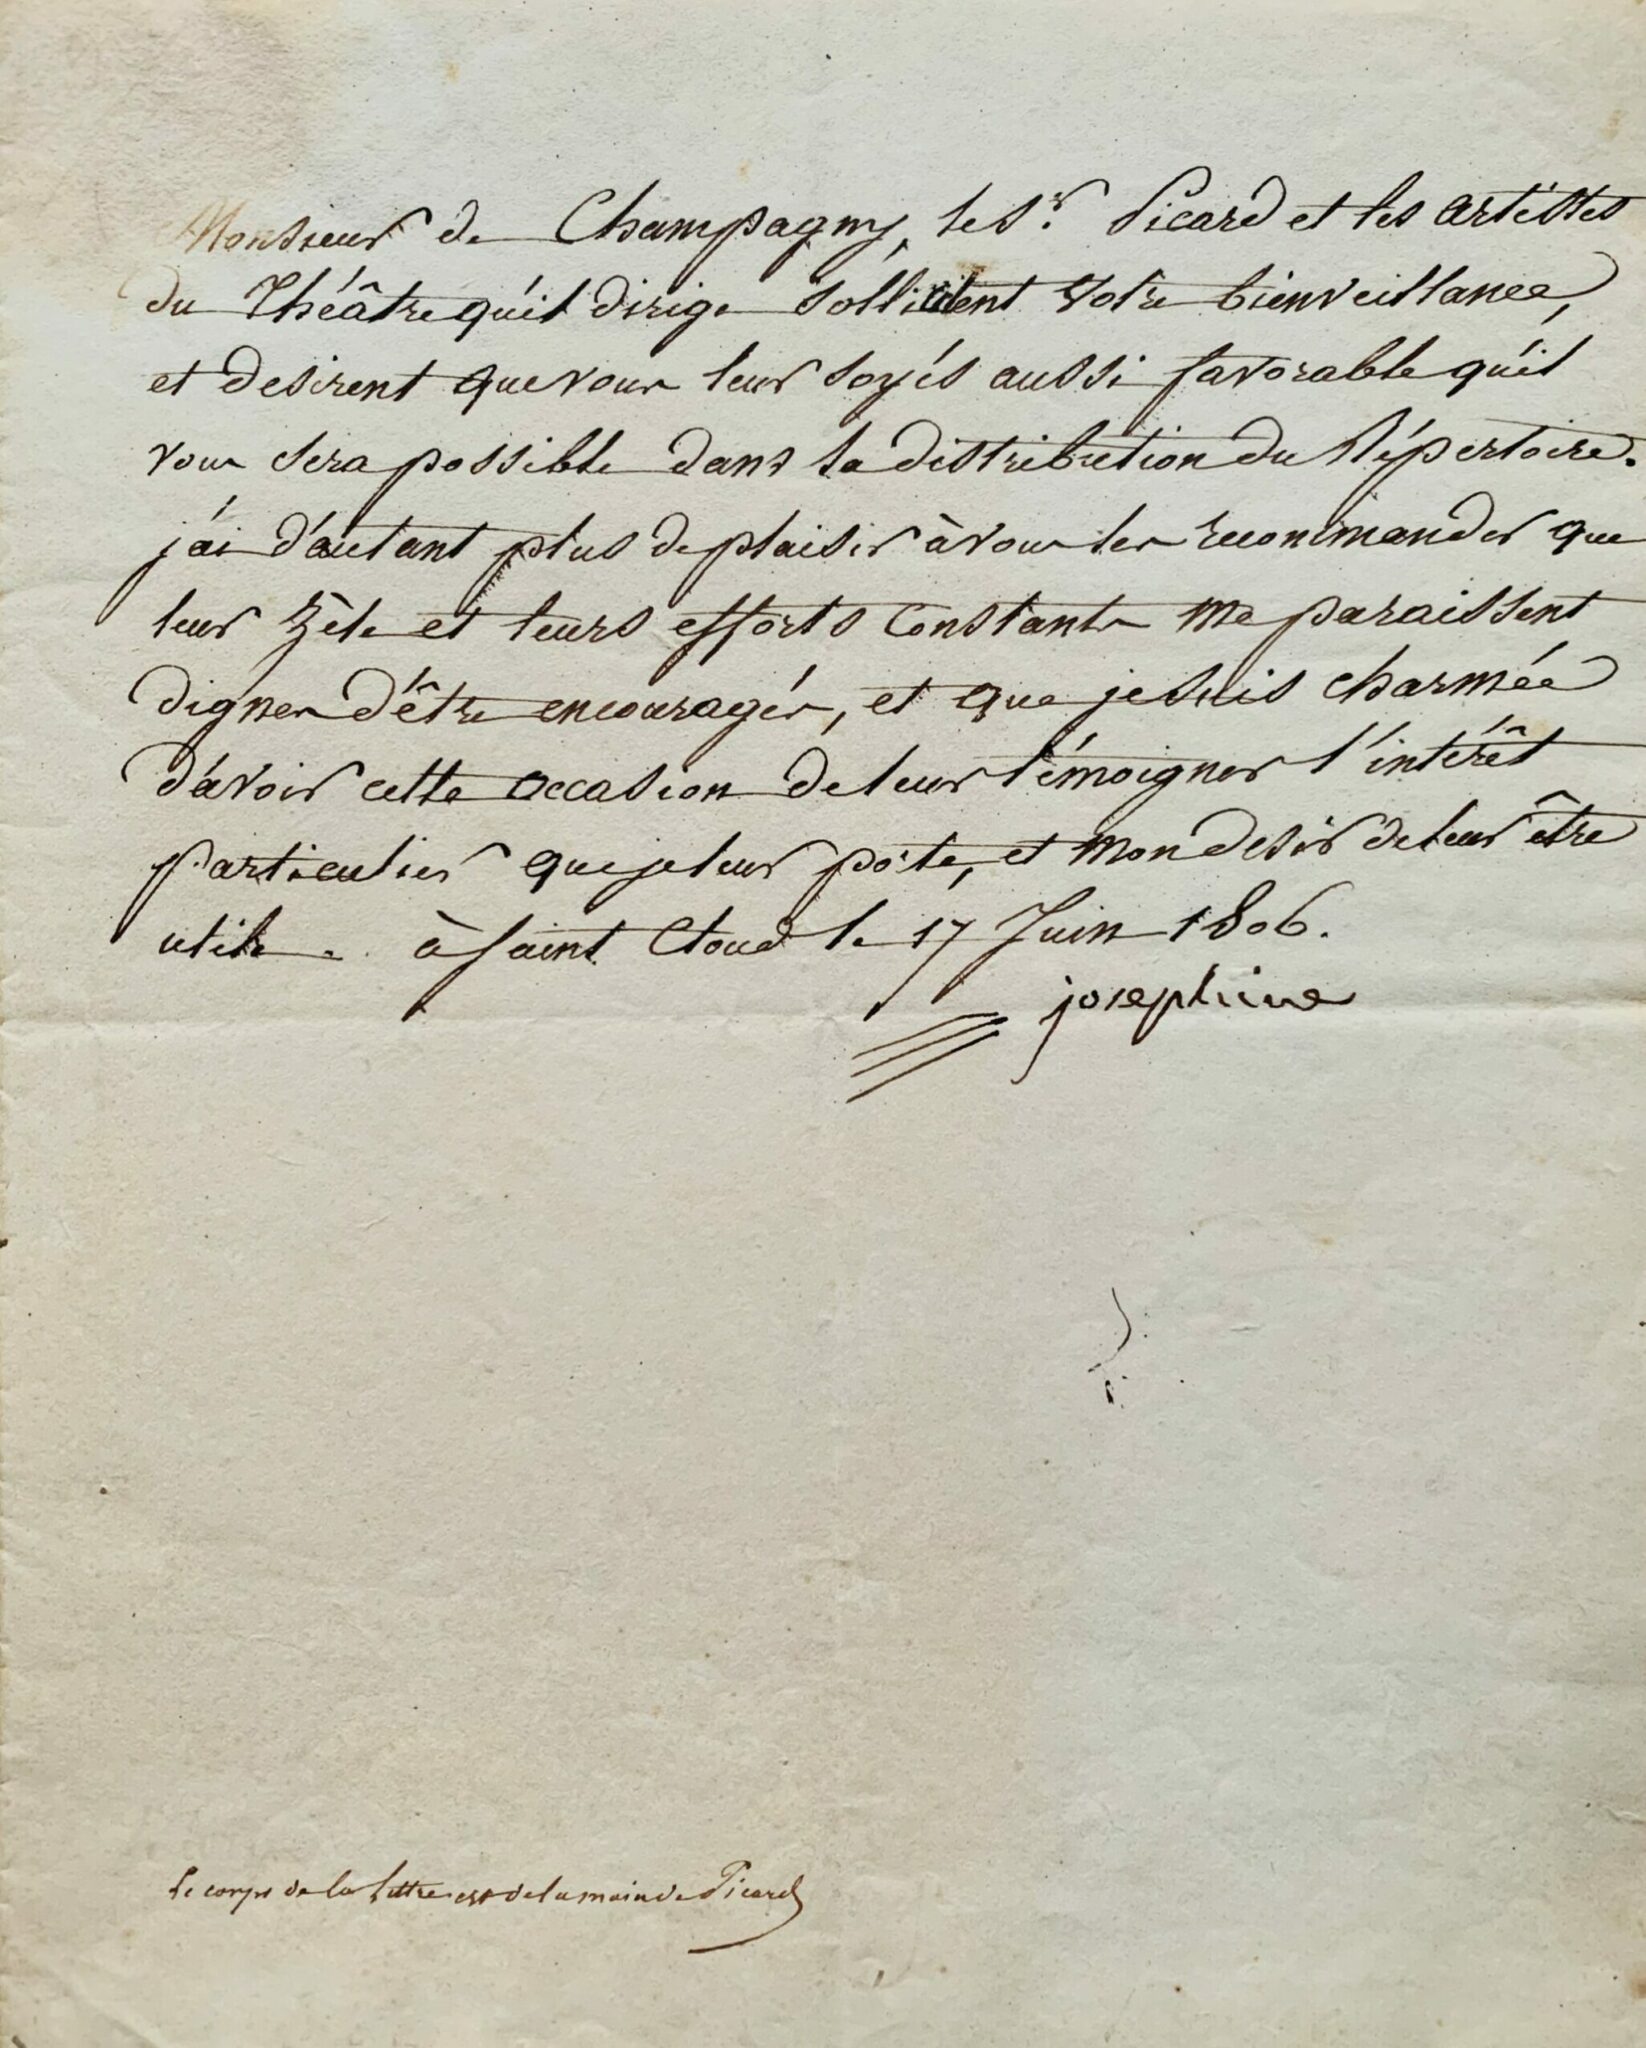 Monsieur de Champagny, le Sr. Picard et les artistes
du Théâtre qu'il dirige sollicitent votre bienveillance,
et desirent que vous leur soyés aussi favorable qu'il
vous sera possible dans la distribution du Répertoire.
j'ai d'autant plus de plaisir à vous les recommander que
leur zèle et leurs efforts constants me paraissent
dignes d'être encouragés, et que je suis charmée
d'avoir cette occasion de leur témoigner l'intérêt
particulier que je leur porte, et mon desir de leur être
utile. à Saint Cloud le 17 Juin 1806.
josephine
Le corps de la lettre est de la main de Picard